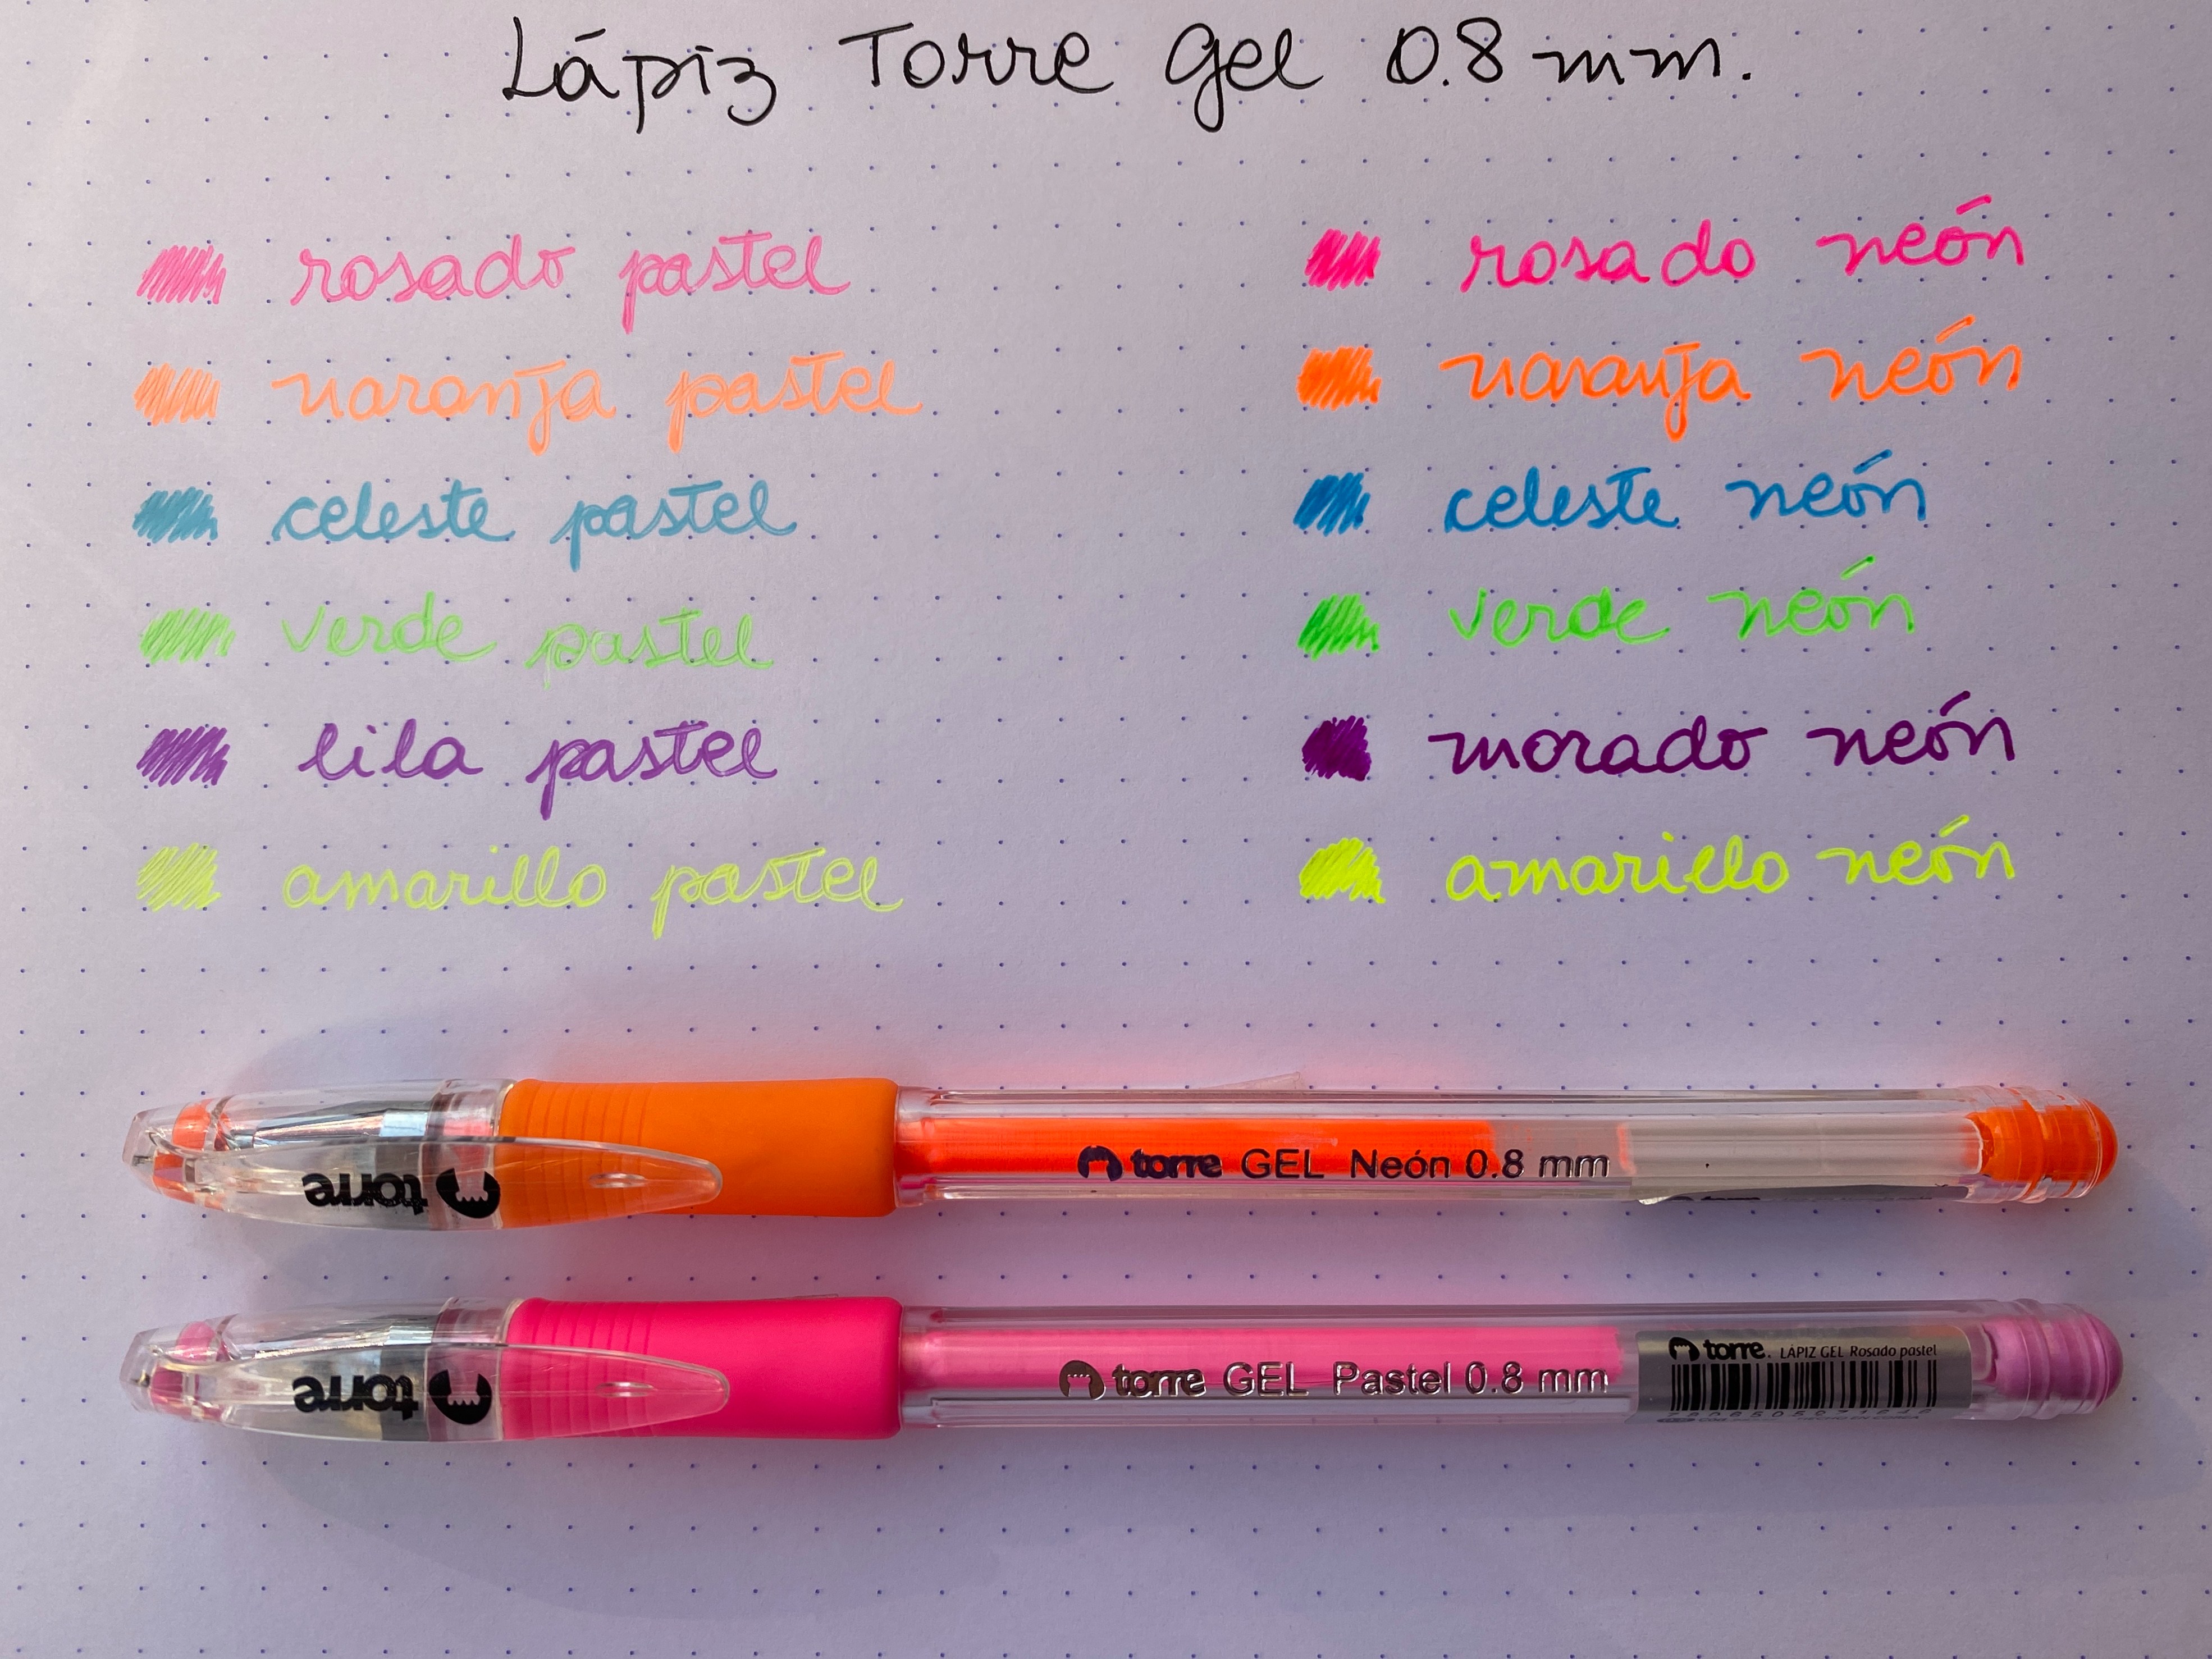 Lápiz Torre Gel 0.8 mm.
rosado pastel
naranja pastel
celeste pastel
verde pastel
lila pastel
amarillo pastel
rosado neón
naranja neón
celeste neón
verde neón
morado neón
amarillo neón
torre
torre GEL Neón 0.8 mm
torre
torre
torre GEL Pastel 0.8 mm
torre. LÁPIZ GEL Rosado pastel